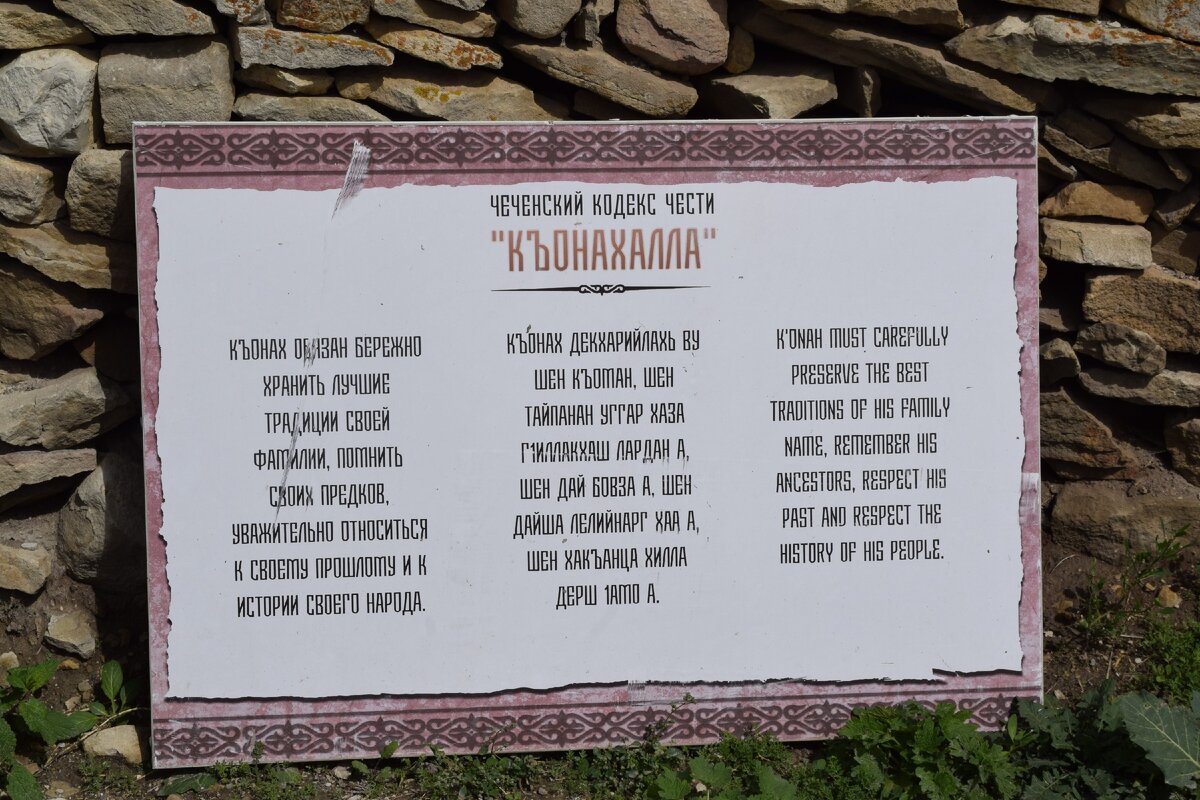 ЧЕЧЕНСКИЙ КОДЕКС ЧЕСТИ
"КЪОНАХАЛЛА"
КЪОНАХ ОБЯЗАН БЕРЕЖНО
ХРАНИТЬ ЛУЧШИЕ
ТРАДИЦИИ СВОЕЙ
ФАМИЛИИ, ПОМНИТЬ
СВОИХ ПРЕДКОВ,
УВАЖИТЕЛЬНО ОТНОСИТЬСЯ
К СВОЕМУ ПРОШЛОМУ И К
ИСТОРИИ СВОЕГО НАРОДА.
КЪОНАХ ДЕКХАРИЙЛАХЬ ВУ
ШЕН КЪОМАН, ШЕН
ТАЙПАНАН УГГАР ХАЗА
Г1ИЛЛАКХАШ ЛАРДАН А,
ШЕН ДАЙ БОВЗА А, ШЕН
ДАЙША ЛЕЛИЙНАРГ ХАА А,
ШЕН ХАКЪАНЦА ХИЛЛА
ДЕРШ 1АМО А.
K'ONAH MUST CAREFULLY
PRESERVE THE BEST
TRADITIONS OF HIS FAMILY
NAME, REMEMBER HIS
ANCESTORS, RESPECT HIS
PAST AND RESPECT THE
HISTORY OF HIS PEOPLE.